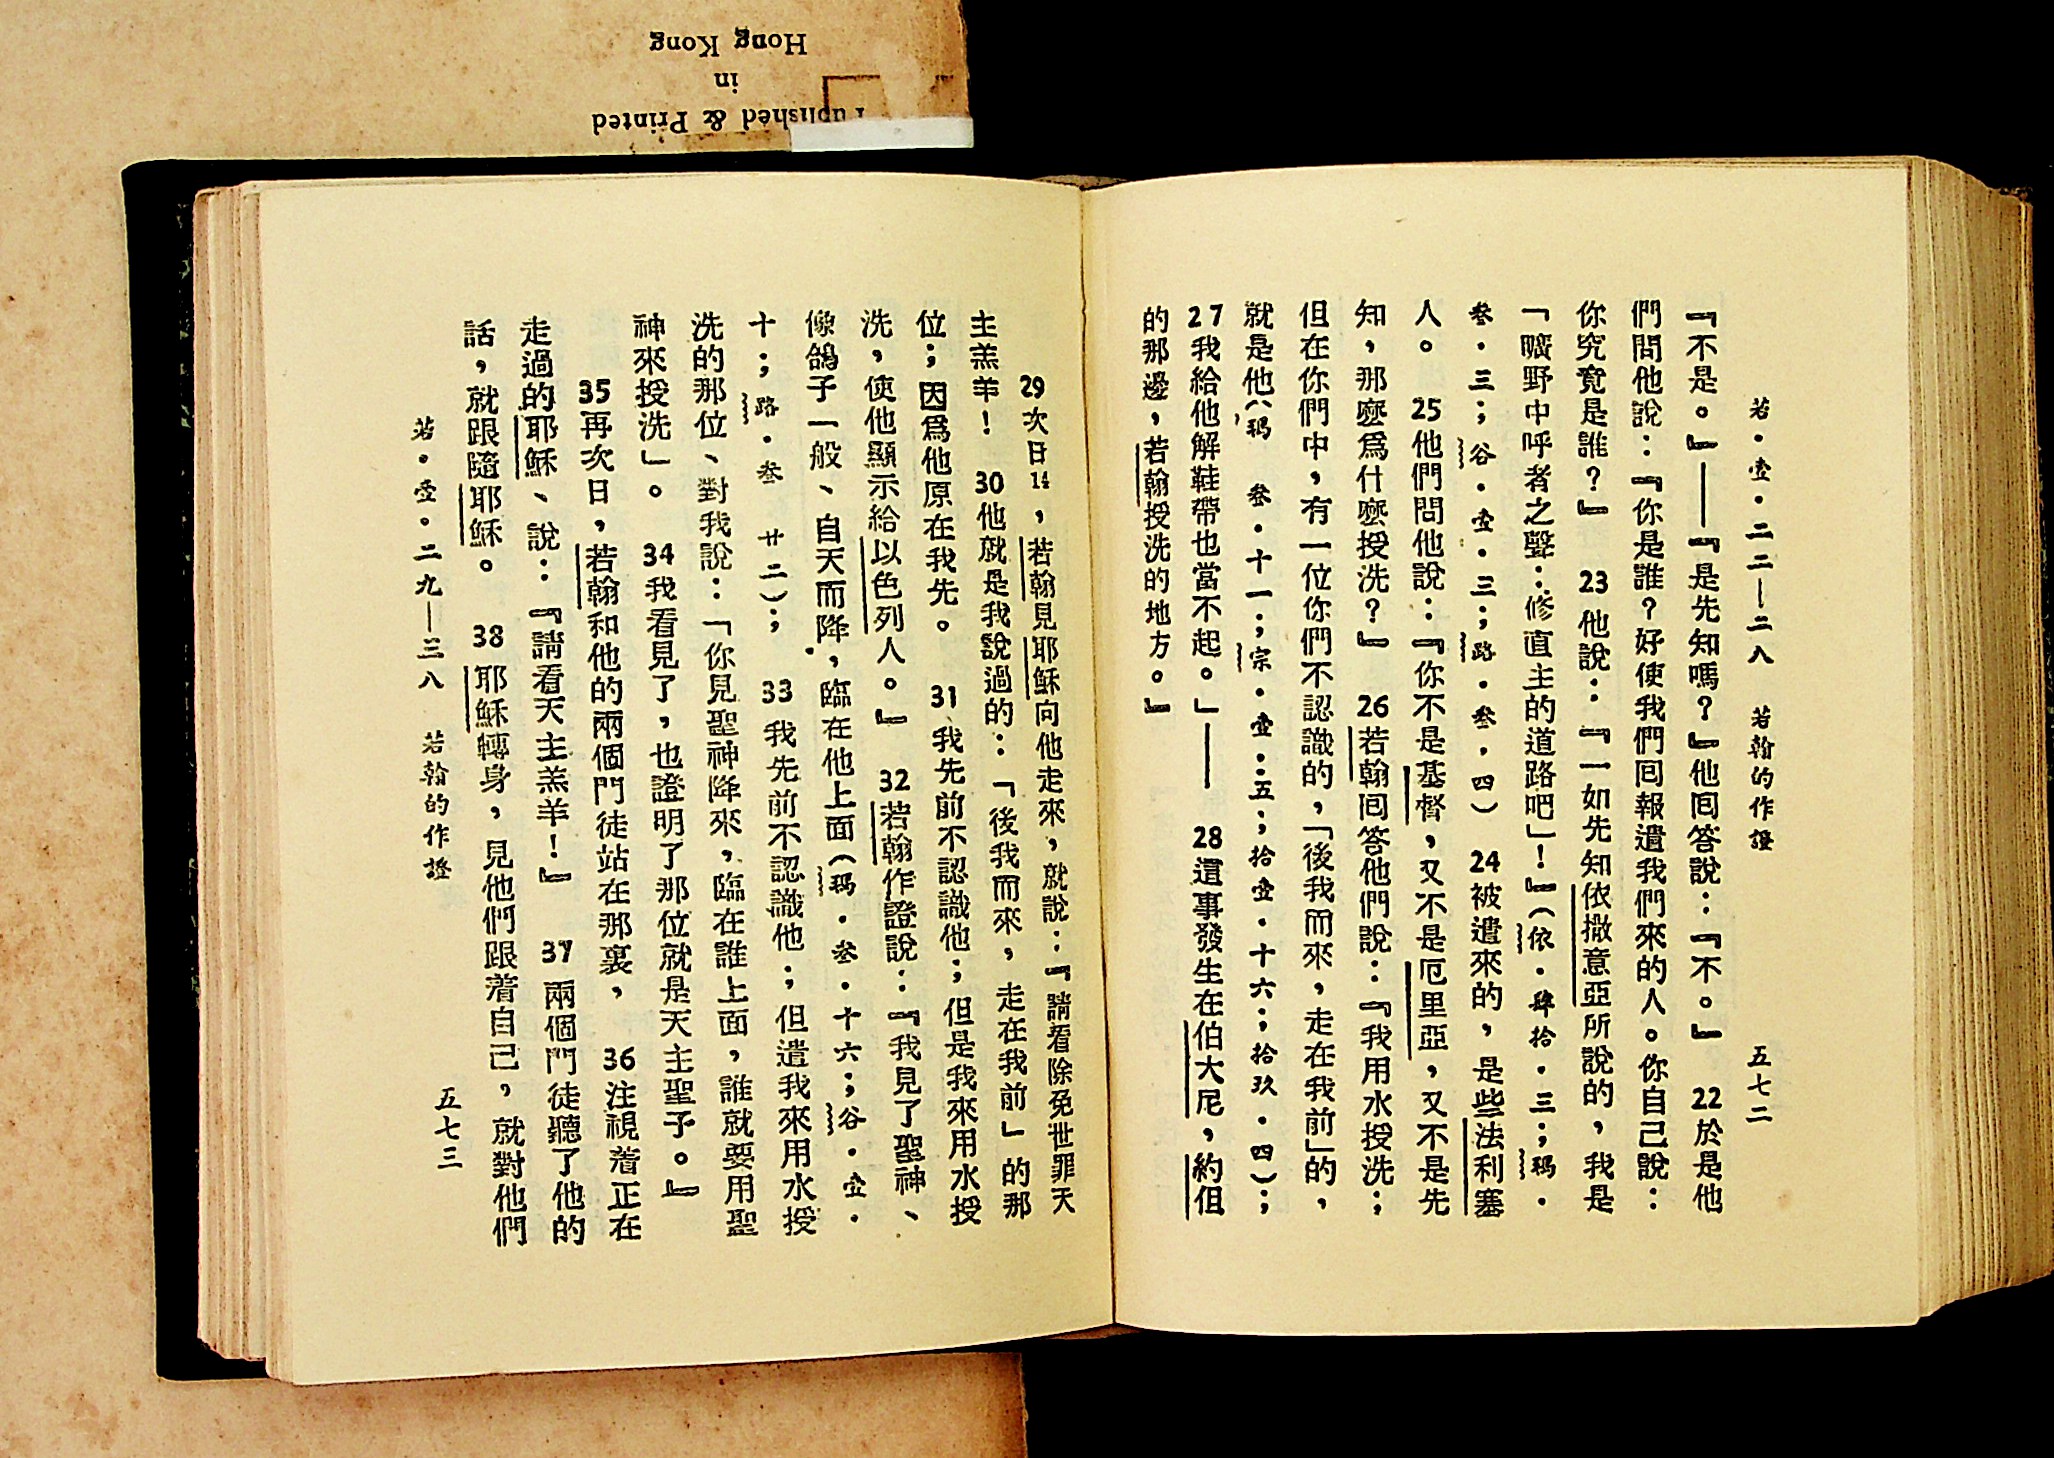 Published & Printed
in
Hong Kong
若・壹・二二—二八　若翰的作證　五七二
『不是。』——『是先知嗎？』他囘答說：『不。』　22於是他
們問他說：『你是誰？好使我們囘報遣我們來的人。你自己說：
你究竟是誰？』　23他說：『一如先知依撒意亞所說的，我是
「曠野中呼者之聲：修直主的道路吧」！』（依・肆拾・三；瑪・
叁・三；谷・壹・三；路・叁・四）　24被遣來的，是些法利塞
人。　25他們問他說：『你不是基督，又不是厄里亞，又不是先
知，那麼爲什麼授洗？』　26若翰囘答他們說：『我用水授洗；
但在你們中，有一位你們不認識的，「後我而來，走在我前」的，
就是他（瑪　叁・十一；宗・壹：五；拾壹・十六；拾玖・四）；
27我給他解鞋帶也當不起。」——　28這事發生在伯大尼，約但
的那邊，若翰授洗的地方。』
29次日14，若翰見耶穌向他走來，就說：『請看除免世罪天
主羔羊！　30他就是我說過的：「後我而來，走在我前」的那
位；因爲他原在我先。　31我先前不認識他；但是我來用水授
洗，使他顯示給以色列人。』　32若翰作證說：『我見了聖神、
像鴿子一般、自天而降，臨在他上面（瑪・叁・十六；谷・壹・
十；路・叁　廿二）；　33我先前不認識他；但遣我來用水授
洗的那位、對我說：「你見聖神降來，臨在誰上面，誰就要用聖
神來授洗」。　34我看見了，也證明了那位就是天主聖子。』
35再次日，若翰和他的兩個門徒站在那裏，　36注視着正在
走過的耶穌、說：『請看天主羔羊！』　37兩個門徒聽了他的
話，就跟隨耶穌。　38耶穌轉身，見他們跟着自己，就對他們
若・壹・二九—三八　若翰的作證　五七三